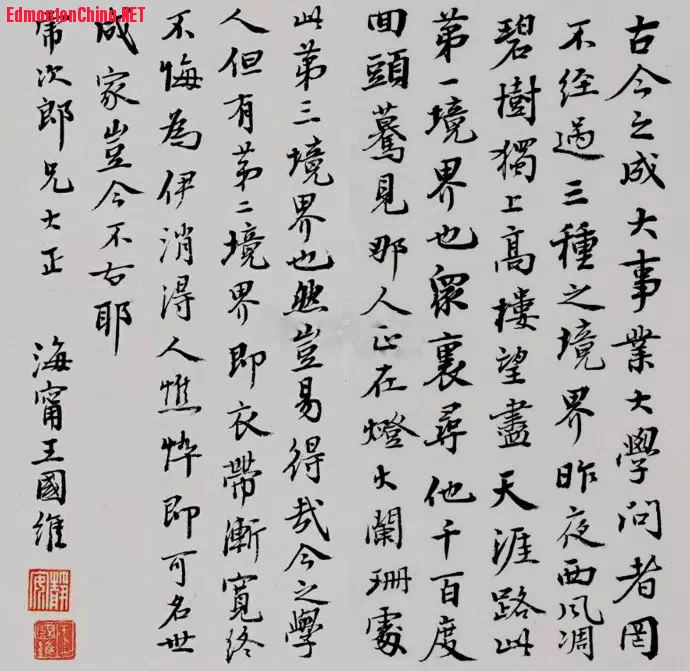 EdmontonChina.NET
古今之成大事業大學問者罔
不經過三種之境界昨夜西風凋
碧樹獨上高樓望盡天涯路此
第一境界也眾裏尋他千百度
回頭驀見那人正在燈火闌珊處
此第三境界也然豈易得哉今之學
人但有第二境界即衣帶漸寬終
不悔為伊消得人憔悴即可名世
成家豈今不古耶
次郎兄大正
海甯王國維
靜安
王國維